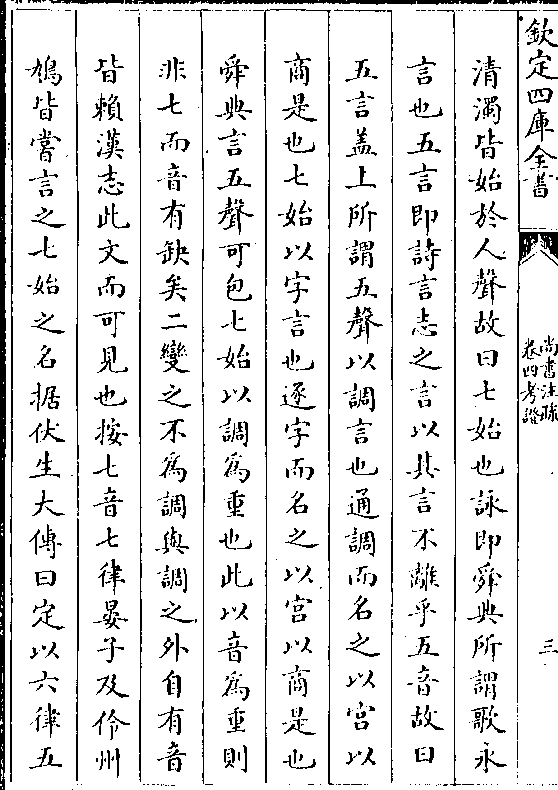 欽定四庫全書
尚書注疏
卷四考證
三
清濁皆始於人聲故曰七始也詠即舜典所謂歌永
言也五言即詩言志之言以其言不離乎五音故曰
五言蓋上所謂五聲以調言也通調而名之以宮以
商是也七始以字言也逐字而名之以宮以商是也
舜典言五聲可包七始以調為重也此以音為重則
非七而音有缺矣二變之不為調與調之外自有音
皆賴漢志此文而可見也按七音七律晏子及伶州
鳩皆嘗言之七始之名据伏生大傳曰定以六律五